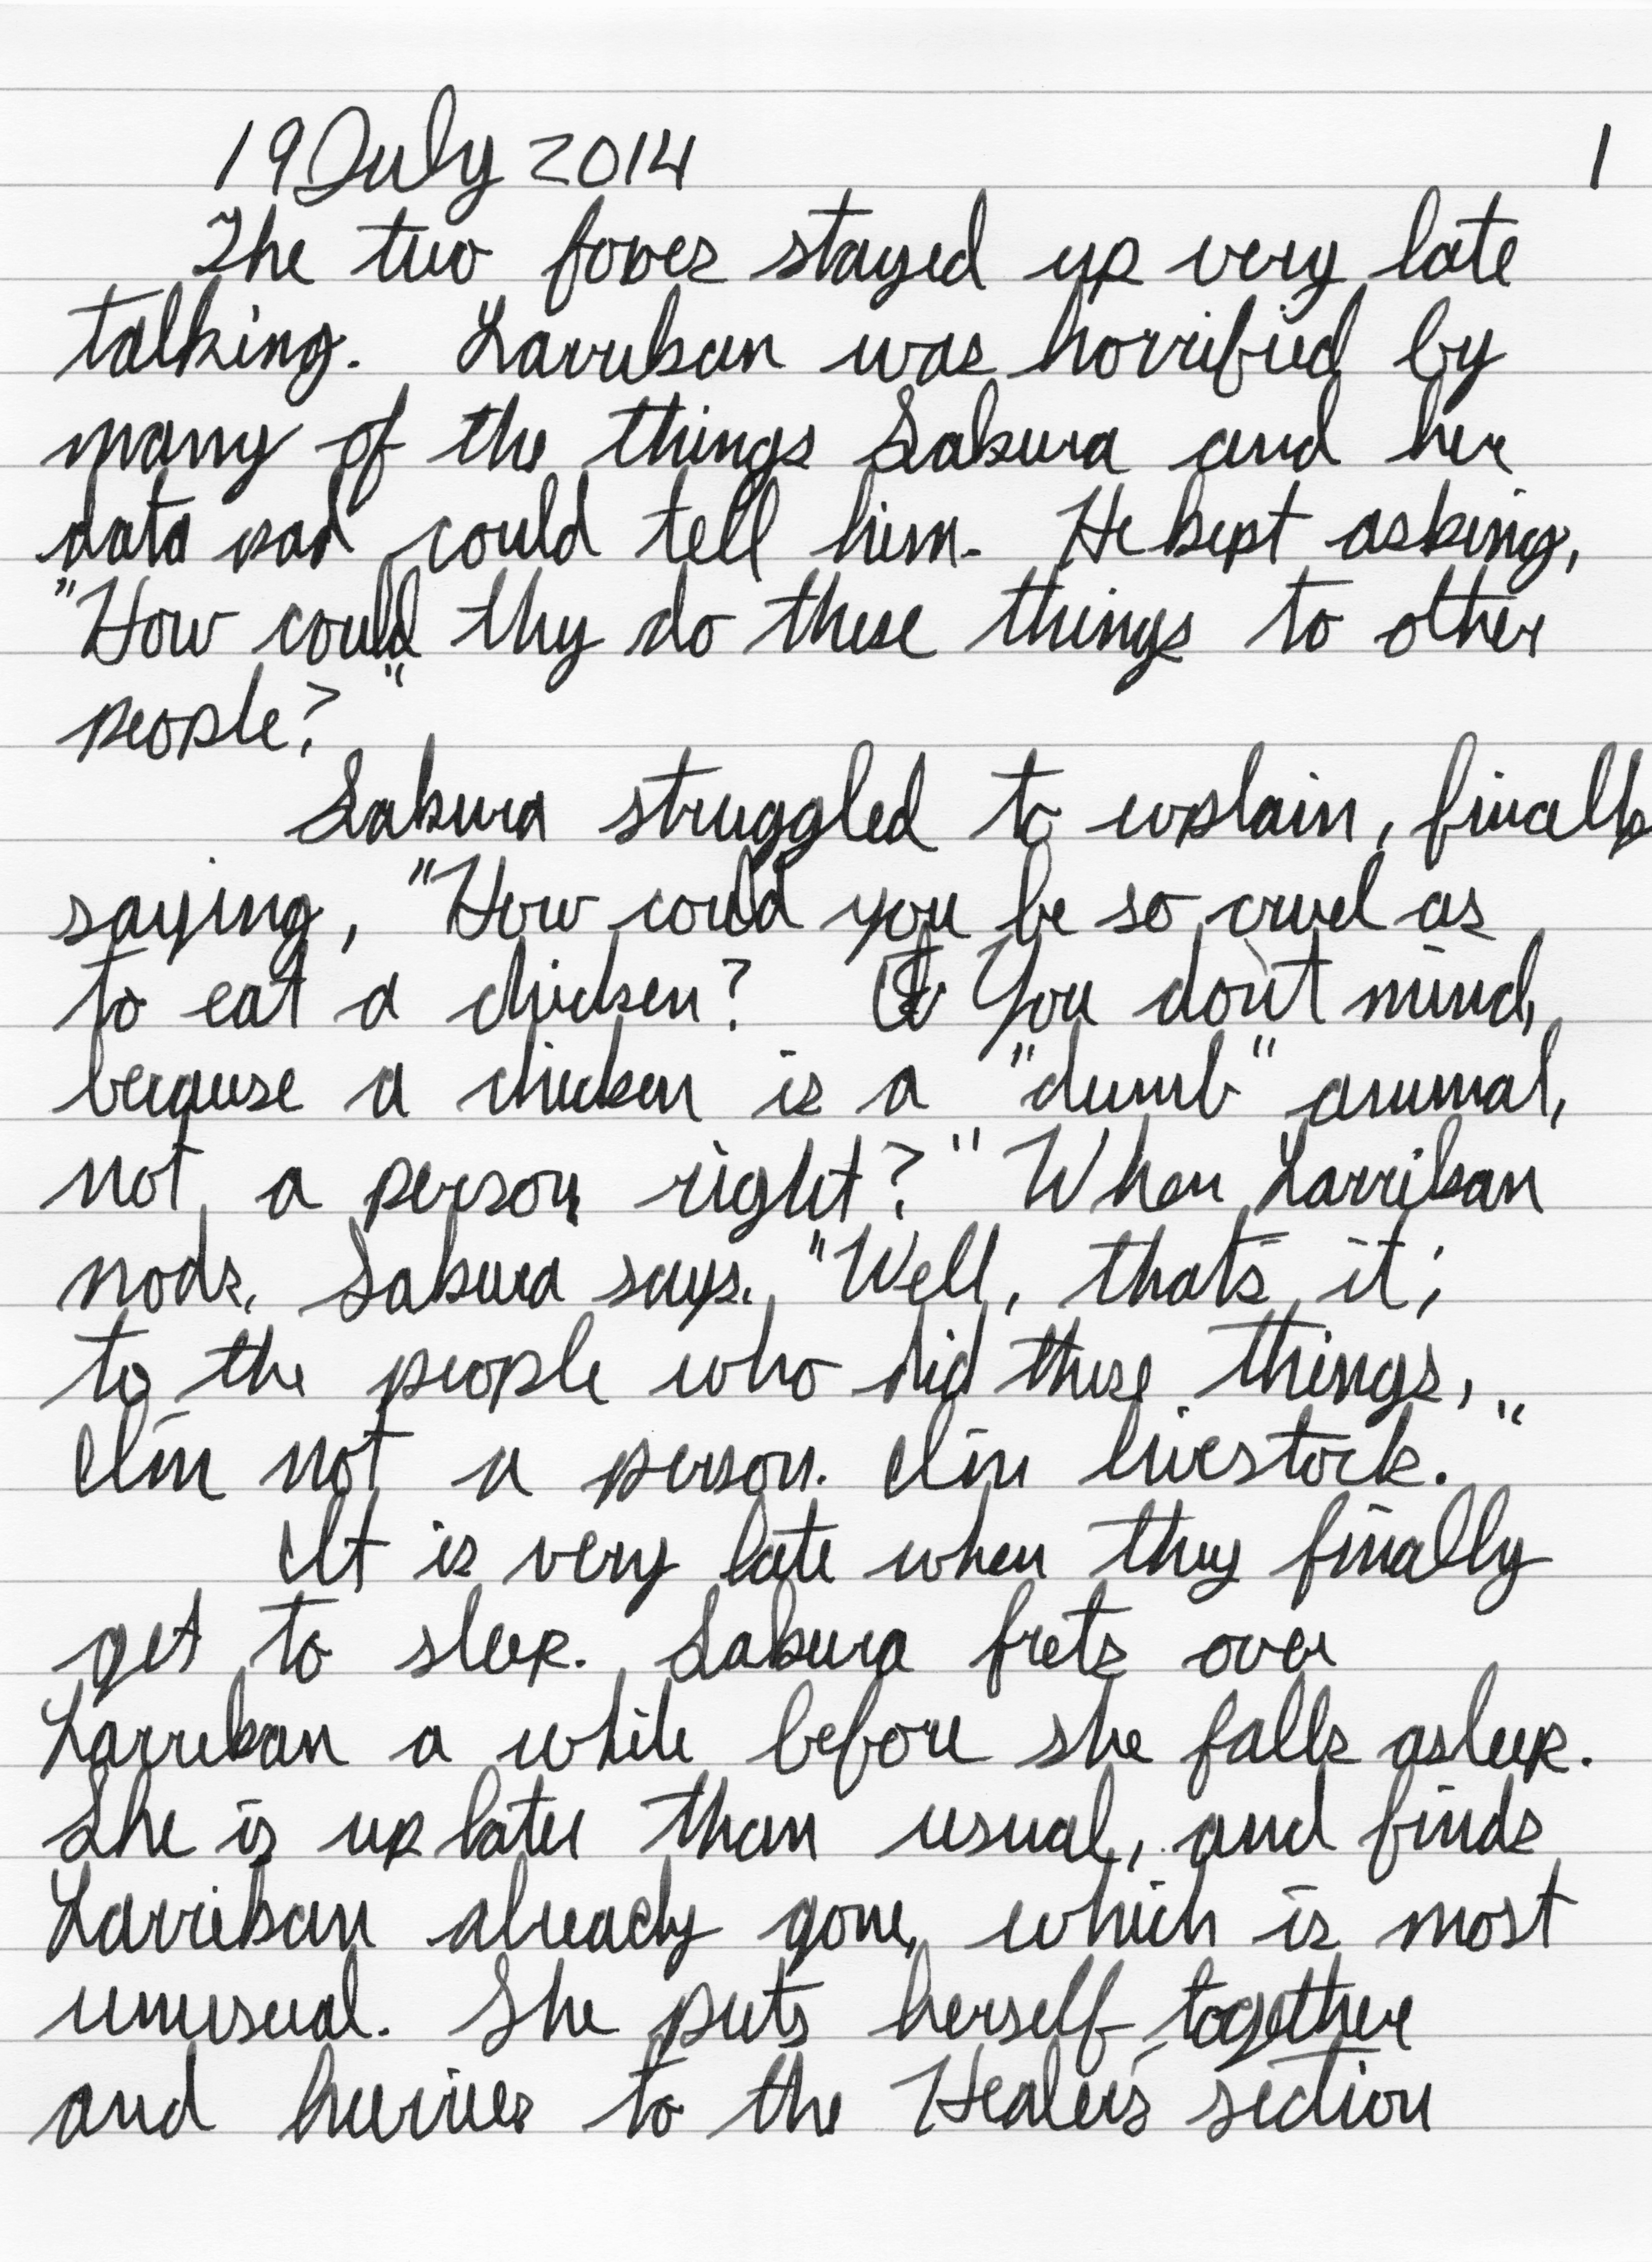 19 July 2014 1
The two foxes stayed up very late
talking. Larriban was horrified by
many of the things Sakura and her
data pad could tell him. He kept asking,
"How could they do these things to other
people?"
Sakura struggled to explain, finally
saying, "How could you be so cruel as
to eat a chicken? You don't mind,
because a chicken is a "dumb" animal,
not a person, right?" When Larriban
nods, Sakura says, "Well, that's it;
to the people who did these things,
I'm not a person. I'm livestock."
It is very late when they finally
get to sleep. Sakura frets over
Larriban a while before she falls asleep.
She is up later than usual, and finds
Larriban already gone, which is most
unusual. She puts herself together
and hurries to the Healer's section